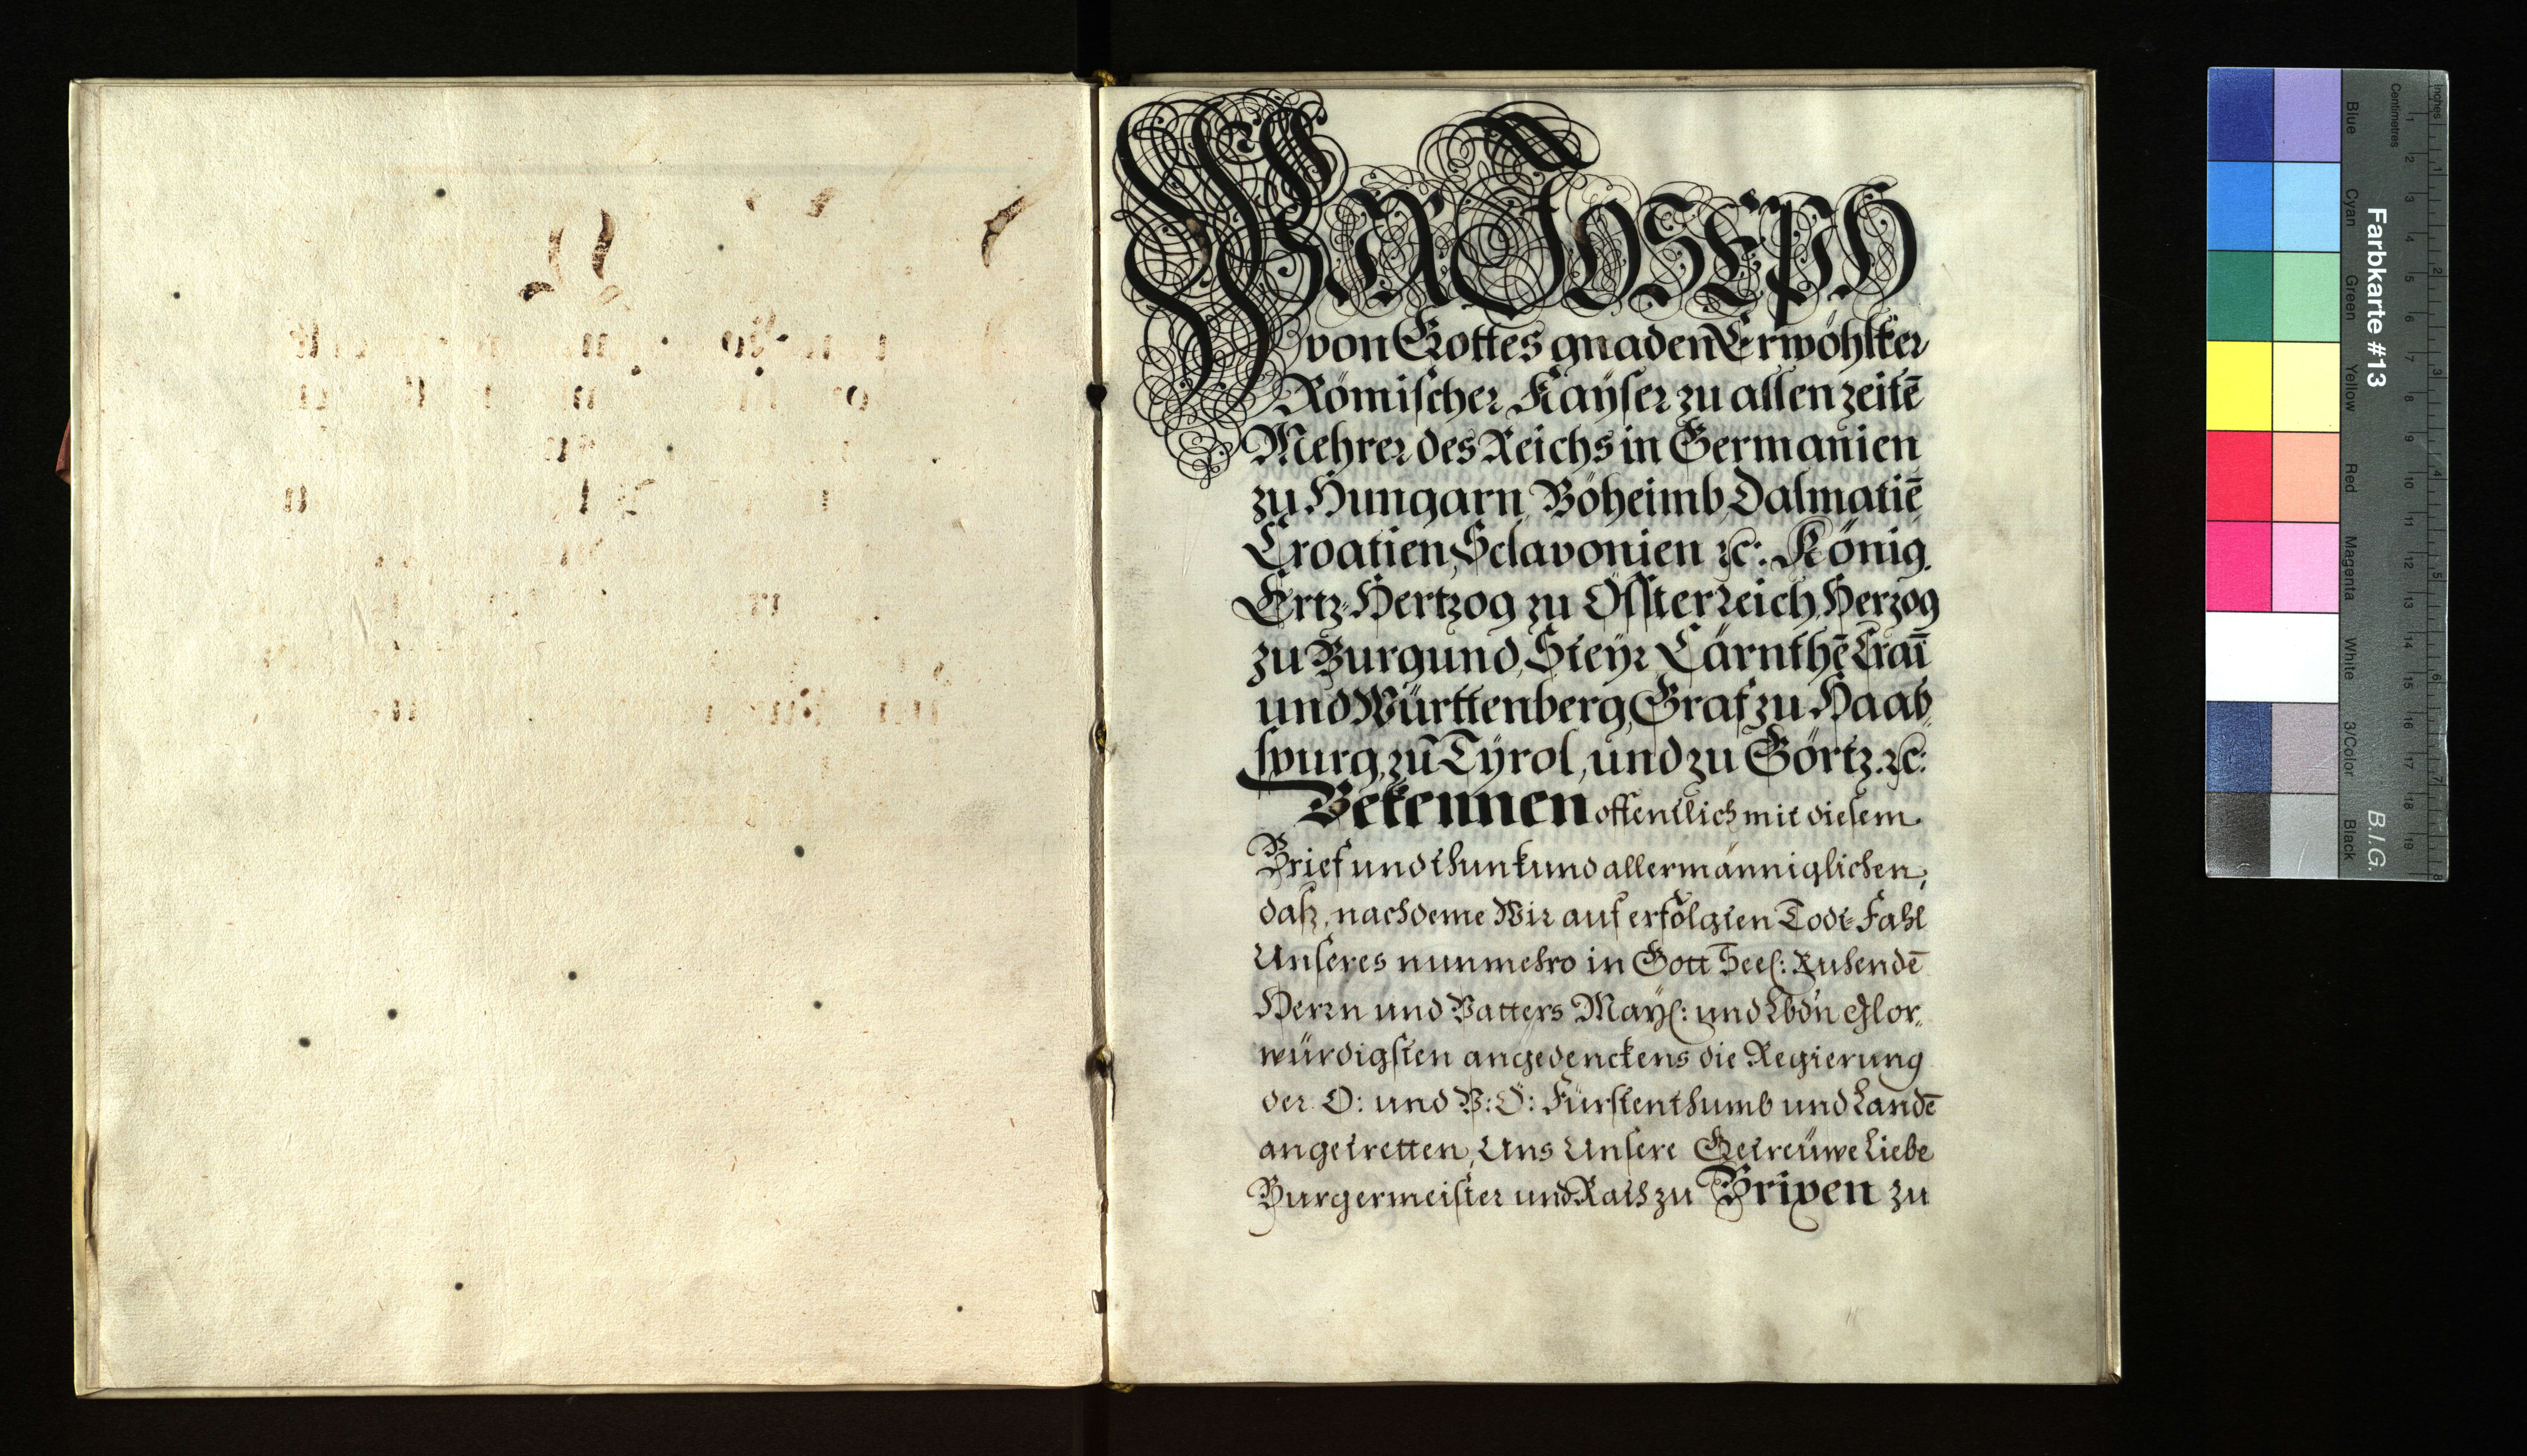 WIR JOSEPH
von Gottes gnaden Erwöhlter
Römischer Kaÿser zu allen zeitē
Mehrer des Reichs in Germanien
zu Hungarn, Böheimb, Dalmatiē
Croatien, Sclavonien ꝛc: König.
Ertz-Hertzog zu Össterreich, Herzog
zu Burgund, Steÿr Cärnthē Craī
und Württenberg, Graf zu Haab„
spurg, zu Tÿrol, und zu Görtz. ꝛc:
Bekennen offentlich mit diesem
Brief und thun kund allermänniglichen,
daß, nachdeme Wir auf erfolgten Todt-Fahl
Unseres nunmehro in Gott Seel: Ruhendē
Herrn und Vatters Maÿl: und Lbdn Glor„
würdigsten angedenckens die Regierung
der O: und V: Ö: Fürstenthumb und Landē
angetretten, Uns Unsere Getreüwe Liebe
Burgermeister und Rath zu Brixen zu
Farbkarte #13
B.I.G.
Inches
Centimetres
1 2 3 4 5 6 7 8 9 10 11 12 13 14 15 16 17 18 19
1 2 3 4 5 6 7 8
Blue
Cyan
Green
Yellow
Red
Magenta
White
3/Color
Black